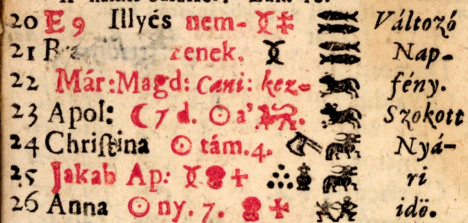 20 E 9 Illyés nem- Változó
21 zenek. Nap-
22 Már: Magd: Cani: kez- fény.
23 Apol: ☾ 7 d. ☉ a' Szokott
24 Chriſtina ☉ tám. 4. Nyá-
25 Jakab Ap: ri
26 Anna ☉ ny. 7. idö.